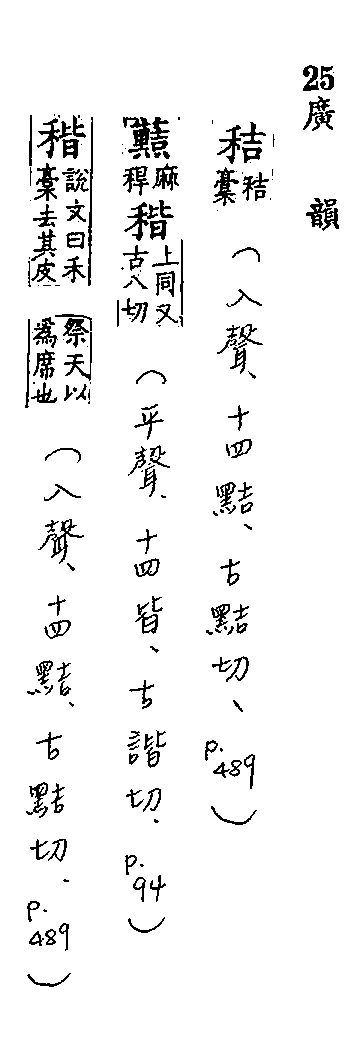 25廣韻
秸秸稾(入聲、十四黠、古黠切、p.489)
麻稈稭上同又古八切(平聲、十四皆、古諧切、p.94)
稭說文曰禾稾去其皮祭天以為席也(入聲、十四黠、古黠切、p.489)